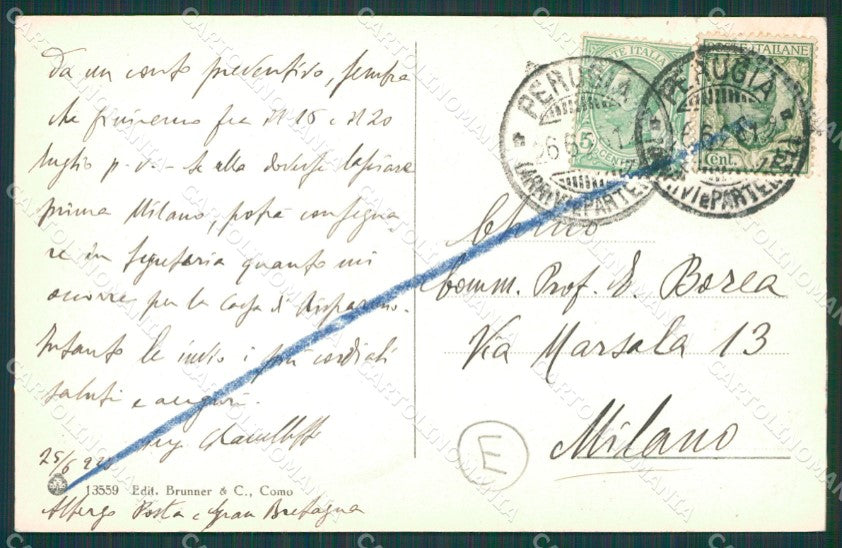 da un conto preventivo, sembra
che finiremo fra il 15 e il 20
luglio p.v. - Se ella dovesse lasciare
prima Milano, potrà consegna
re in Segreteria quanto mi
occorre per la Cassa di Risparmio.
Intanto le invio i più cordiali
saluti e auguri.
25/6
Albergo Posta e Gran Bretagna
13559 Edit. Brunner & C., Como
POSTE ITALIANE
PERUGIA
(ARRIVI E PARTENZE)
PERUGIA
(ARRIVI E PARTENZE)
Cent.
Chmo
Comm. Prof. E. Borea
Via Marsala 13
Milano
E
CARTOLINOMANIA